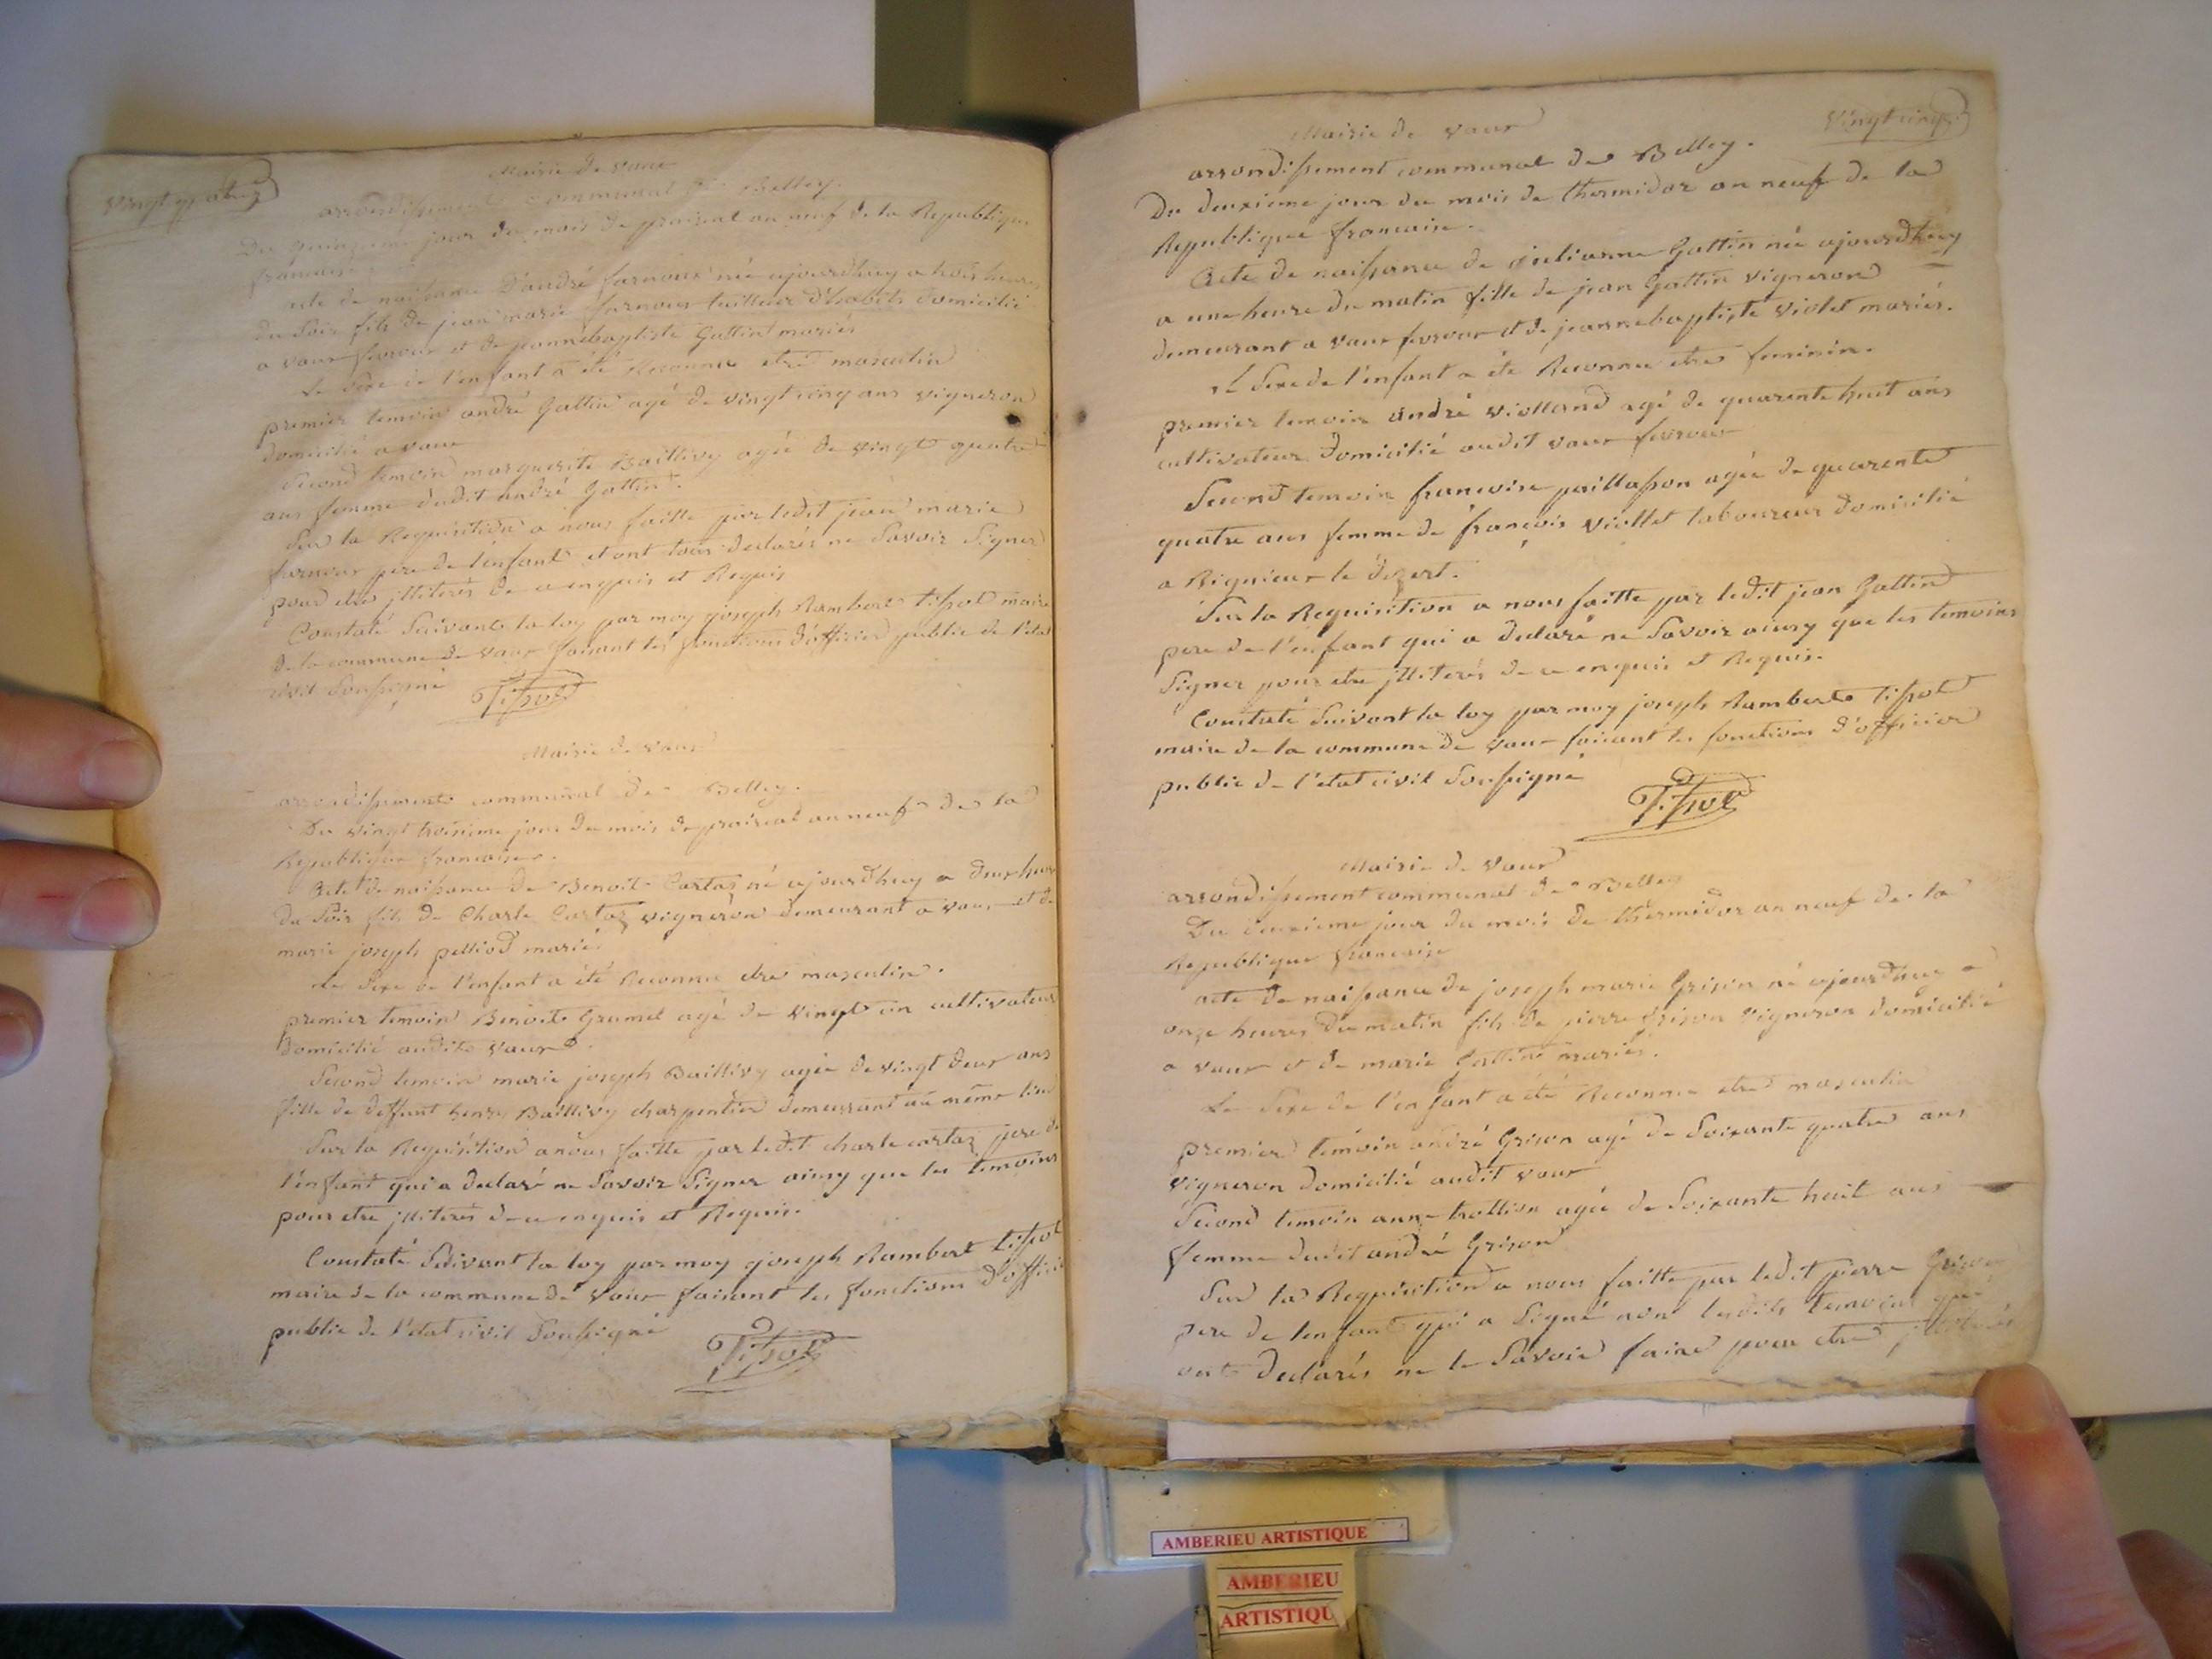 vingt quatre
Mairie de vaux
arrondissement communal de Belley.
Du quinzieme jour du mois de prairial an neuf de la Republique
francaise
acte de naissance D'andré farnoux née ajourdhuy a trois heures
du Soir fils de jean marie farnoux tailleur d'habits domicilié
a vaux fevroux et de jeannebaptiste Gattint mariés
Le Sexe de l'enfant a été Reconnu etre masculin
premier temoin andré Gattin agé de vingt cinq ans vigneron
domicilié a vaux
Second temoin marguerite Baillivy agée de vingt quatre
ans femme dudit andré Gattin.
Sur la Requisition a nous faitte par ledit jean marie
farnoux pere de lenfant et ont tous declarés ne Savoir Signer
pour etre jlliterés de ce enquis et Requis
Constaté Suivant la loy par moy joseph Rambert tissot maire
de la commune de vaux faisant les fonctions d'officier public de l'etat
civil Soussigné
Tissot
Mairie de vaux
arrondissement communal de Belley.
Du vingt troisieme jour du mois de prairial an neuf de la
Republique francaise.
Acte de naissance de Benoit Cartaz né ajourdhuy a deux heures
du Soir fils de Charle Cartaz vigneron demeurant a vaux et de
marie joseph pelliod mariés
Le Sexe de l'enfant a été Reconnu etre masculin.
premier temoin Benoit Grumel agé de vingt un cultivateur
domicilié audit vaux.
Second temoin marie joseph Baillivy agée de vingt deux ans
fille de deffunt henry Baillivy charpentier demeurant au même lieu
Sur la Requisition a nous faitte par ledit charle cartaz pere de
l'enfant qui a declaré ne Savoir Signer ainsy que les temoins
pour etre jlliterés de ce enquis et Requis.
Constaté Suivant la loy par moy joseph Rambert tissot
maire de la commune de vaux faisant les fonctions d'officier
public de l'etat civil Soussigné
Tissot
vingt cinq
Mairie de vaux
arrondissement communal de Belley.
Du deuxieme jour du mois de thermidor an neuf de la
Republique francaise.
Acte de naissance de julianne Gattin née ajourdhuy
a une heure du matin fille de jean Gattin vigneron
demeurant a vaux fevroux et de jeannebaptiste violet mariés.
le Sexe de l'enfant a été Reconnu etre feminin.
premier temoin andré violland agé de quarente huit ans
cultivateur domicilié audit vaux fevroux
Second temoin francoise paillasson agée de quarente
quatre ans femme de françois viollet laboureur domicilié
a Rignieux le dezert.
Sur la Requisition a nous faitte par ledit jean Gattin
pere de l'enfant qui a declaré ne Savoir ainsy que les temoins
Signer pour etre jlliterés de ce enquis et Requis.
Constaté Suivant la loy par moy joseph Rambert tissot
maire de la commune de vaux faisant les fonctions d'officier
public de l'etat civil Soussigné
Tissot
Mairie de vaux
arrondissement communal de Belley
Du deuxieme jour du mois de thermidor an neuf de la
Republique francaise
acte de naissance de joseph marie Grison né ajourdhuy a
onze heures du matin fils de pierre Grison vigneron domicilié
a vaux et de marie Gattin mariés.
Le Sexe de l'enfant a été Reconnu etre masculin
premier temoin andré Grison agé de Soixante quatre ans
vigneron domicilié audit vaux
Second temoin anne trollion agée de Soixante huit ans
femme dudit andré Grison
Sur la Requisition a nous faitte par ledit pierre Grison
pere de lenfant qui a Signé non lesdits temoins qui
ont declarés ne le Savoir faire pour etre jlliterés
AMBERIEU ARTISTIQUE
AMBERIEU
ARTISTIQU